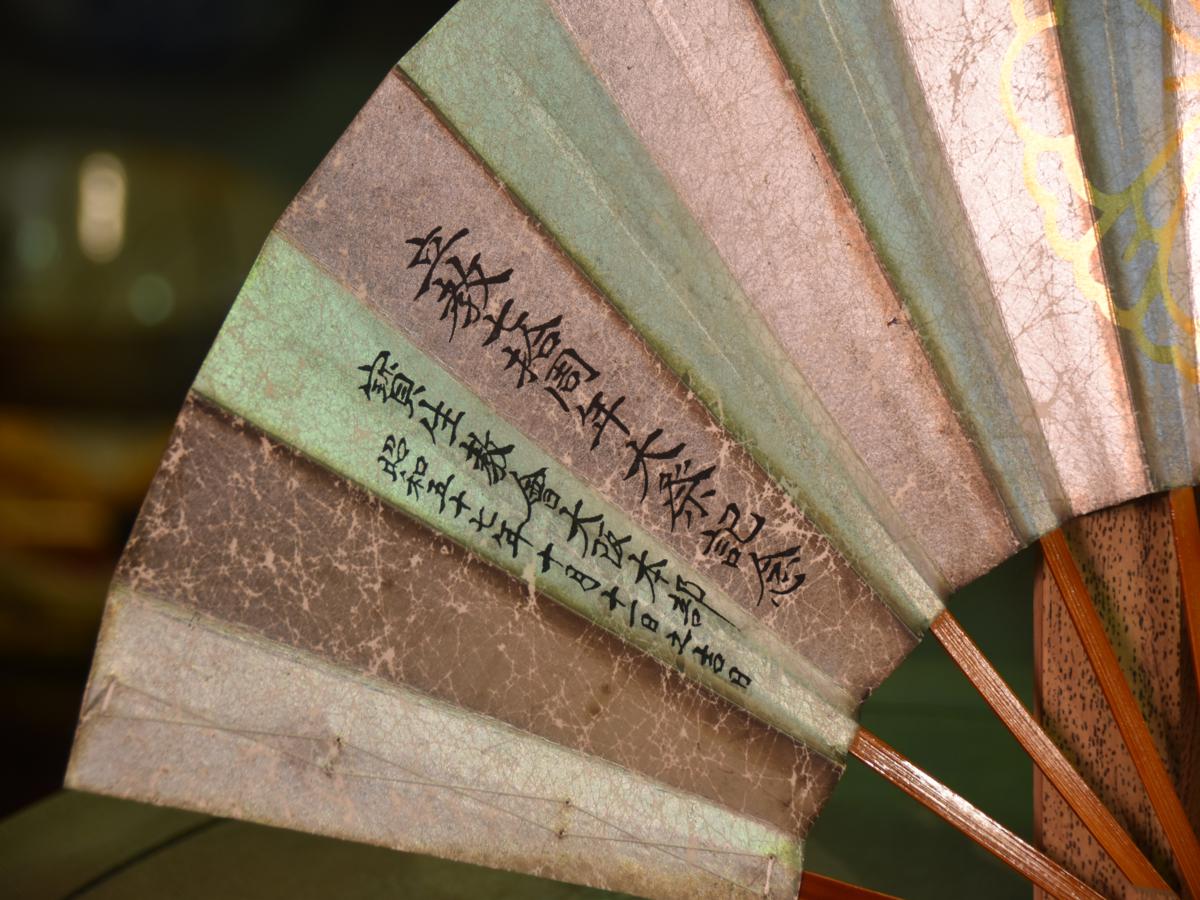 立教七拾周年大祭記念
寳生教會大阪本部
昭和五十七年十月十一日之吉日